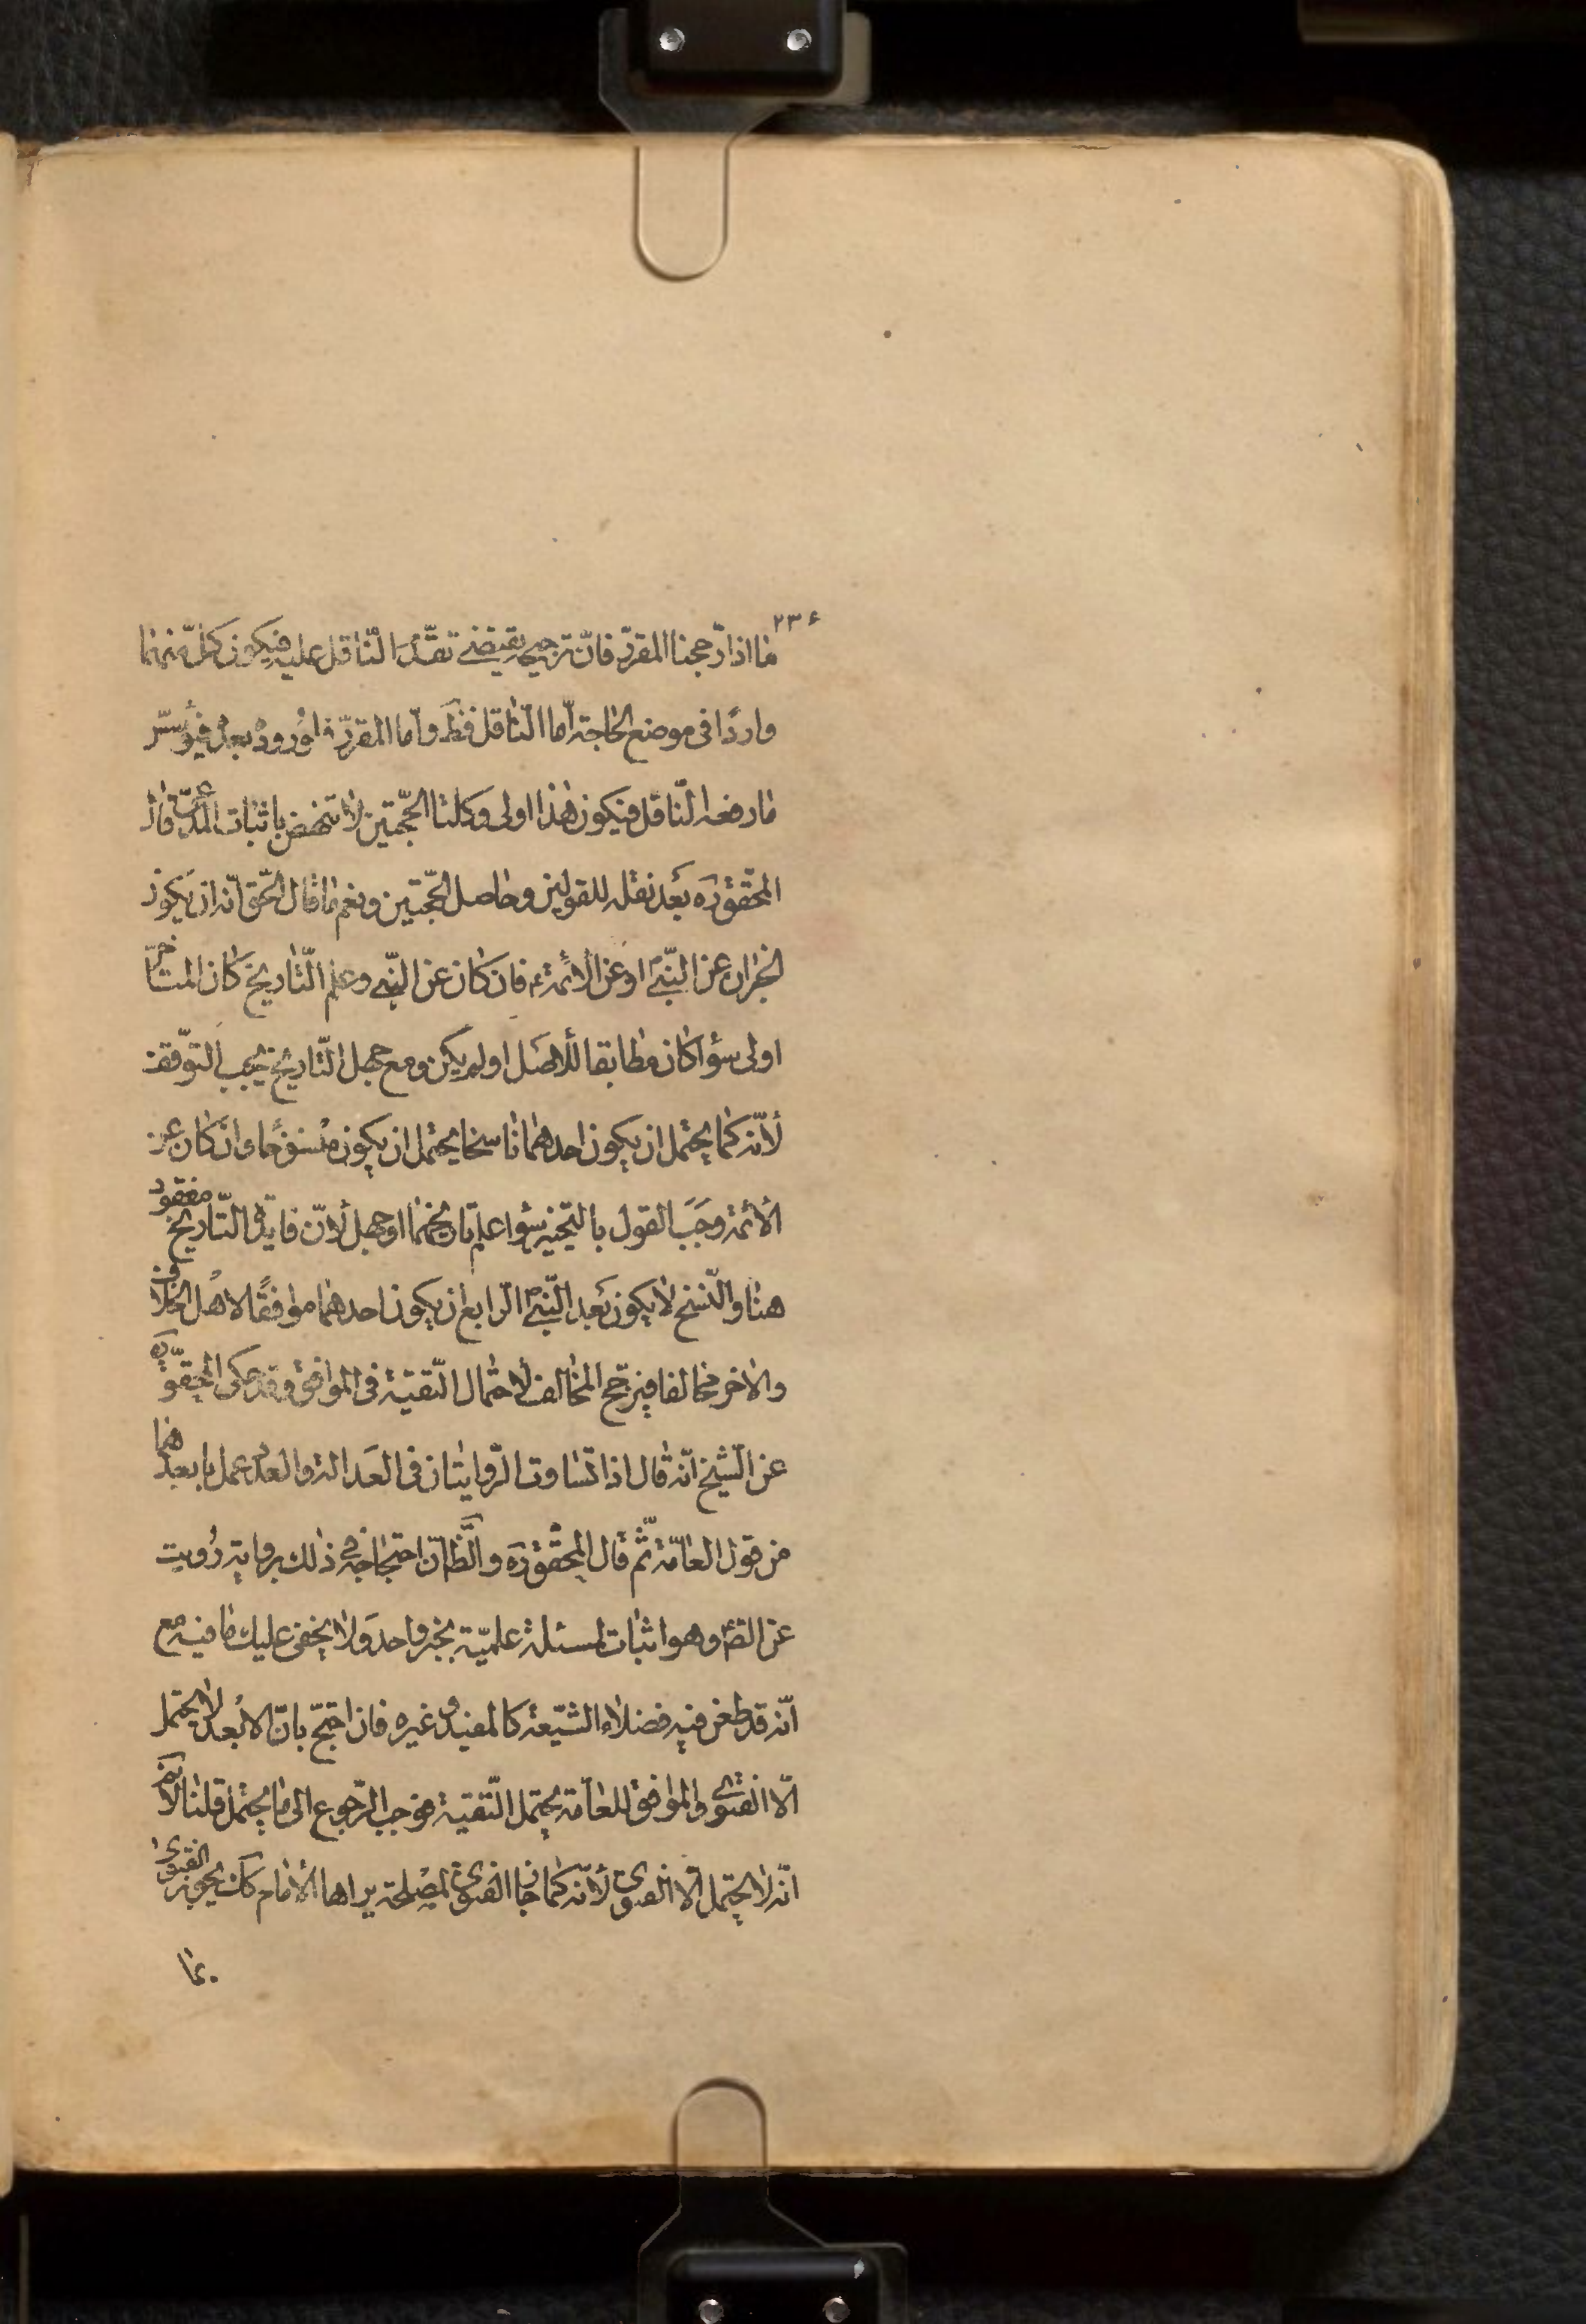 ٢٣۶
ما اذا رجحنا المقرر فان ترجيحه يقتضى تقدم الناقل عليه فيكون كل منهما
واردا فى موضع الحاجة اما الناقل فظ واما المقرر فلوروده بعده فيؤسس
ما رفعه الناقل فيكون هذا اولى وكلتا الحجتين لا تنهض باثبات المدعى قال
المحقق ره بعد نقله للقولين وحاصل الحجتين ونعم ما قال الحق انه ان يكون
الخبران عن النبى او عن الائمة ع فان كان عن النبى وعلم التاريخ كان المتاخر
اولى سواء كان مطابقا للاصل او لم يكن ومع جهل التاريخ يجب التوقف
لانه كما يحتمل ان يكون احدهما ناسخا يحتمل ان يكون منسوخا وان كان عن
الائمة وجب القول بالتخيير سواء علم تاريخهما او جهل لان فايدة التاريخ مفقود
هنا والنسخ لا يكون بعد النبى الرابع ان يكون احدهما موافقا لاهل الخلاف
والاخر مخالفا فيرجح المخالف لاحتمال التقية فى الموافق وقد حكى المحقق ره
عن الشيخ انه قال اذا تساوت الروايتان فى العدالة والعدد عمل بابعدهما
من قول العامة ثم قال المحقق ره والظ ان احتجاجه فى ذلك برواية رويت
عن الصادق وهو اثبات لمسئلة علمية بخبر واحد ولا يخفى عليك ما فيه مع
انه قد طعن فيه فضلاء الشيعة كالمفيد وغيره فان احتج بان الابعد لا يحتمل
الا الفتوى والموافق للعامة يحتمل التقية فوجب الرجوع الى ما يحتمل قلنا لانم
انه لا يحتمل الا الفتوى لانه كما جاز الفتوى لمصلحة يراها الامام كك يجوز الفتوى
بما